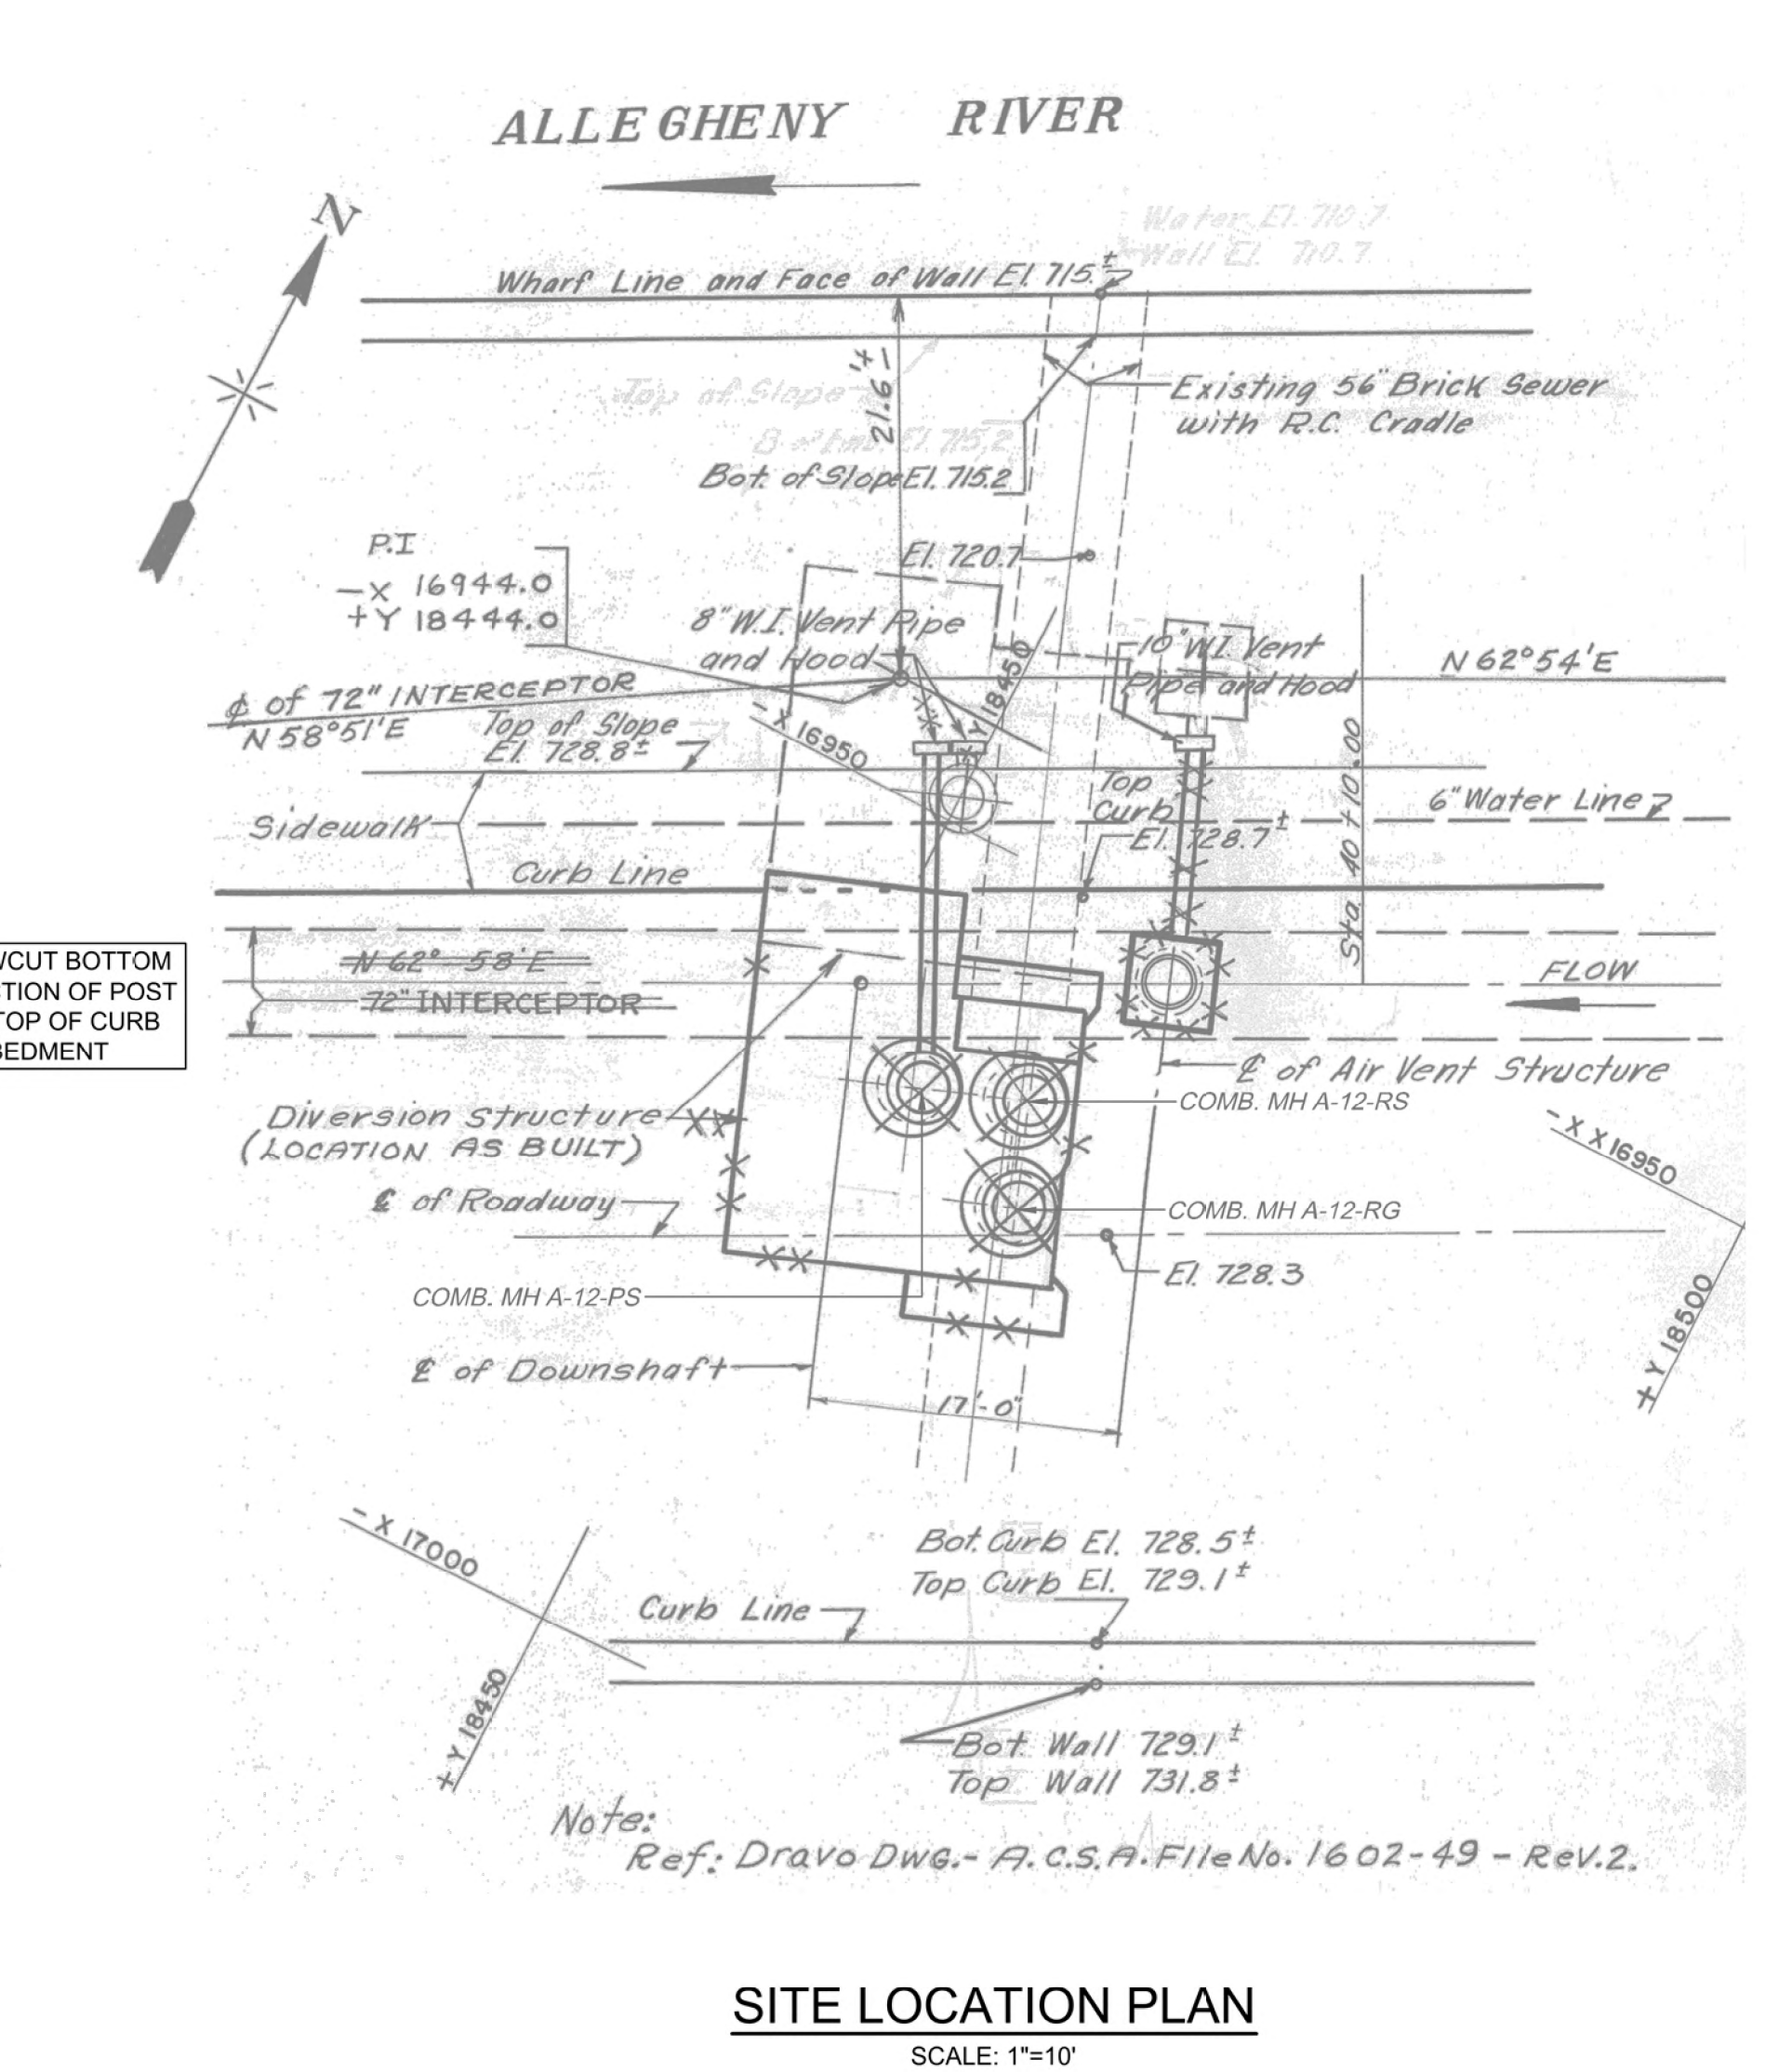 ALLEGHENY RIVER
N
Water El. 710.7
Wall El. 710.7
Wharf Line and Face of Wall El. 715.±
21.6'±
Top of Slope
Existing 56" Brick Sewer
with R.C. Cradle
El. 715.2
Bot. of Slope El. 715.2
P.I
-X 16944.0
+Y 18444.0
El. 720.7
8" W.I. Vent Pipe
and Hood
10" W.I. Vent
Pipe and Hood
N 62°54'E
℄ of 72" INTERCEPTOR
N 58°51'E
Top of Slope
El. 728.8±
-X 16950
+Y 18450
Sta. 40+10.00
Top
Curb
El. 728.7±
6" Water Line
Sidewalk
Curb Line
CUT BOTTOM
TION OF POST
TOP OF CURB
BEDMENT
N 62° 58'E
72" INTERCEPTOR
FLOW
℄ of Air Vent Structure
COMB. MH A-12-RS
Diversion Structure
(LOCATION AS BUILT)
-X 16950
℄ of Roadway
COMB. MH A-12-RG
El. 728.3
COMB. MH A-12-PS
+Y 18500
℄ of Downshaft
17'-0"
-X 17000
Bot. Curb El. 728.5±
Top Curb El. 729.1±
Curb Line
+Y 18450
Bot. Wall 729.1±
Top Wall 731.8±
Note:
Ref: Dravo DWG.- A.C.S.A. File No. 1602-49 - Rev.2.
SITE LOCATION PLAN
SCALE: 1"=10'